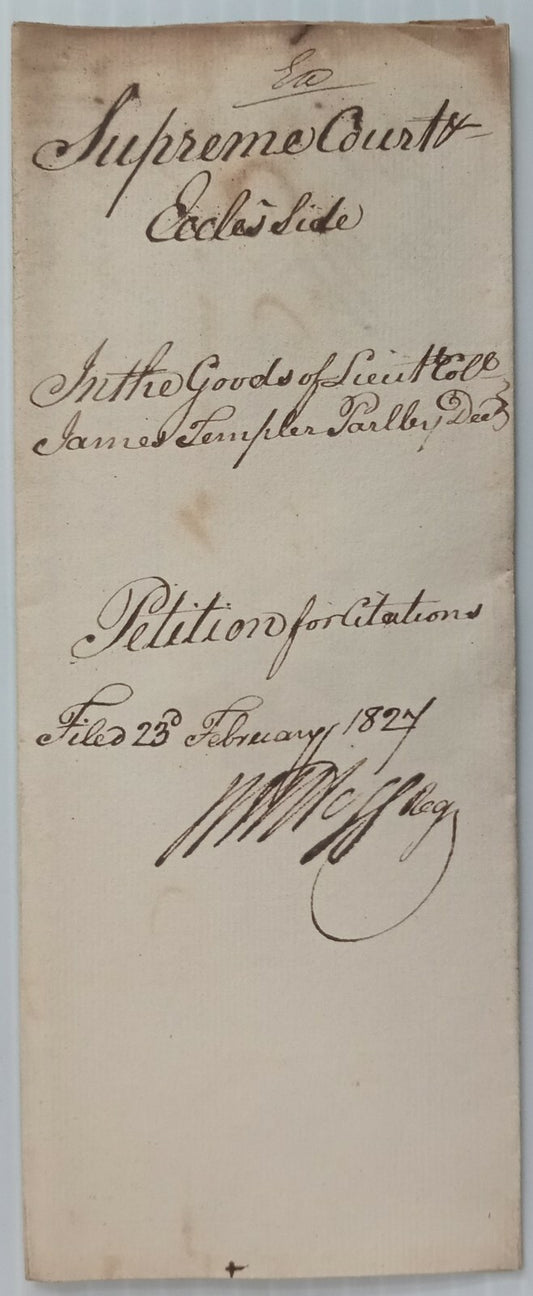 Ex
Supreme Court
Eccles Side
In the Goods of Lieut Coll
James Templer Parlby Decd
Petition for Citations
Filed 23d February 1827
Reg